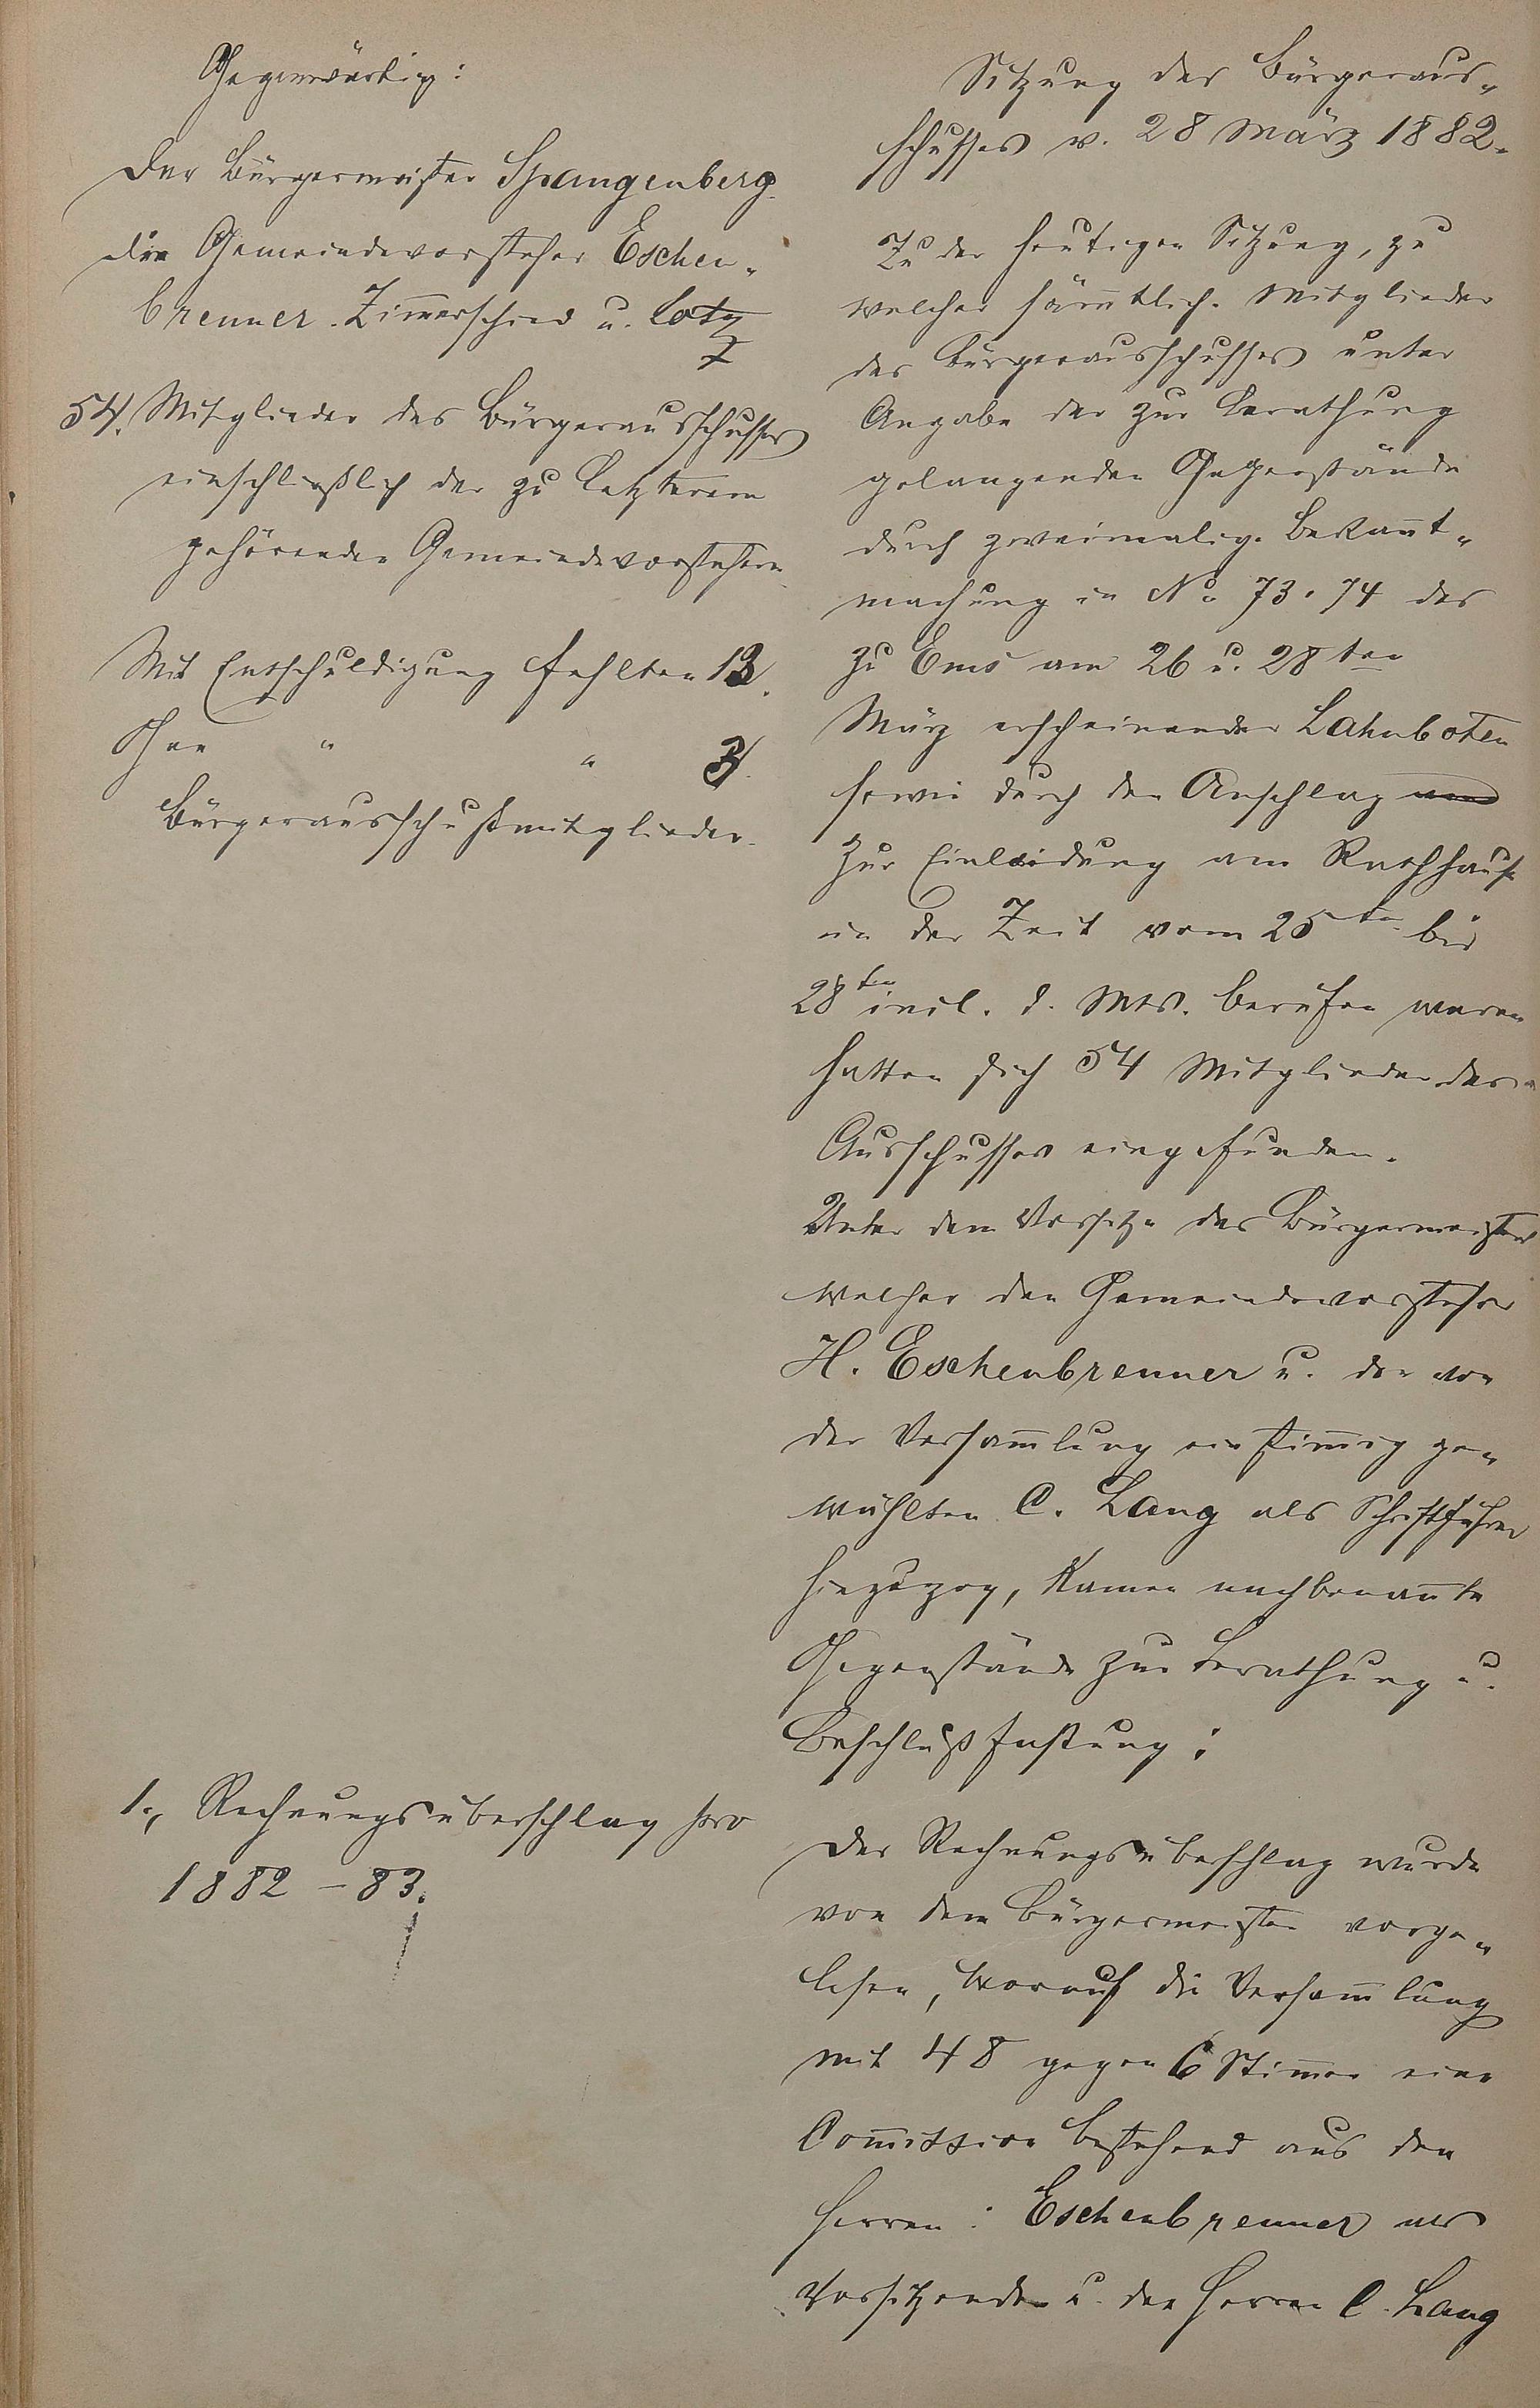 Gegenwärtig:
Der Bürgermeister Spangenberg.
die Gemeindevorsteher Eschen-
brenner. Zim̄erschied u. Lotz
54. Mitglieder des Bürgerausschusses
einschließlich der zu Letzterem
gehörenden Gemeindevorstehern
Mit Entschuldigung fehlten 13.
Ohne " " 3.
Bürgerausschußmitglieder.
1., Rechnungsüberschlag pro
1882-83.
Sitzung des Bürgeraus-
schusses v. 28 März 1882.
Zu der heutigen Sitzung, zu
welcher säm̄tlich. Mitglieder
des Bürgerausschusses unter
Angabe der zur Berathung
gelangenden Gegenstände
durch zweimalige Bekan̄t-
machung in No 73. 74 des
zu Ems am 26 u. 28ten
März erscheinenden Lahnboten
sowie durch den Anschlag und
zur Einladung am Rathhause
in der Zeit vom 25ten bis
28ten incl. d. Mts. berufen waren
hatten sich 54 Mitglieder des
Ausschusses eingefunden.
Unter dem Vorsitze des Bürgermeisters
welcher den Gemeindevorsteher
H. Eschenbrenner u. den von
der Versam̄lung einstim̄ig ge-
wählten C. Lang als Schriftführer
hinzuzog, kamen nachbenan̄te
Gegenstände zur Berathung u.
Beschlußfassung:
Der Rechnungsüberschlag wurde
von dem Bürgermeister vorge-
lesen, worauf die Versam̄lung
mit 48 gegen 6 Stim̄en eine
Com̄ission bestehend aus den
Herren: Eschenbrenner als
Vorsitzenden u. den Herren C. Lang